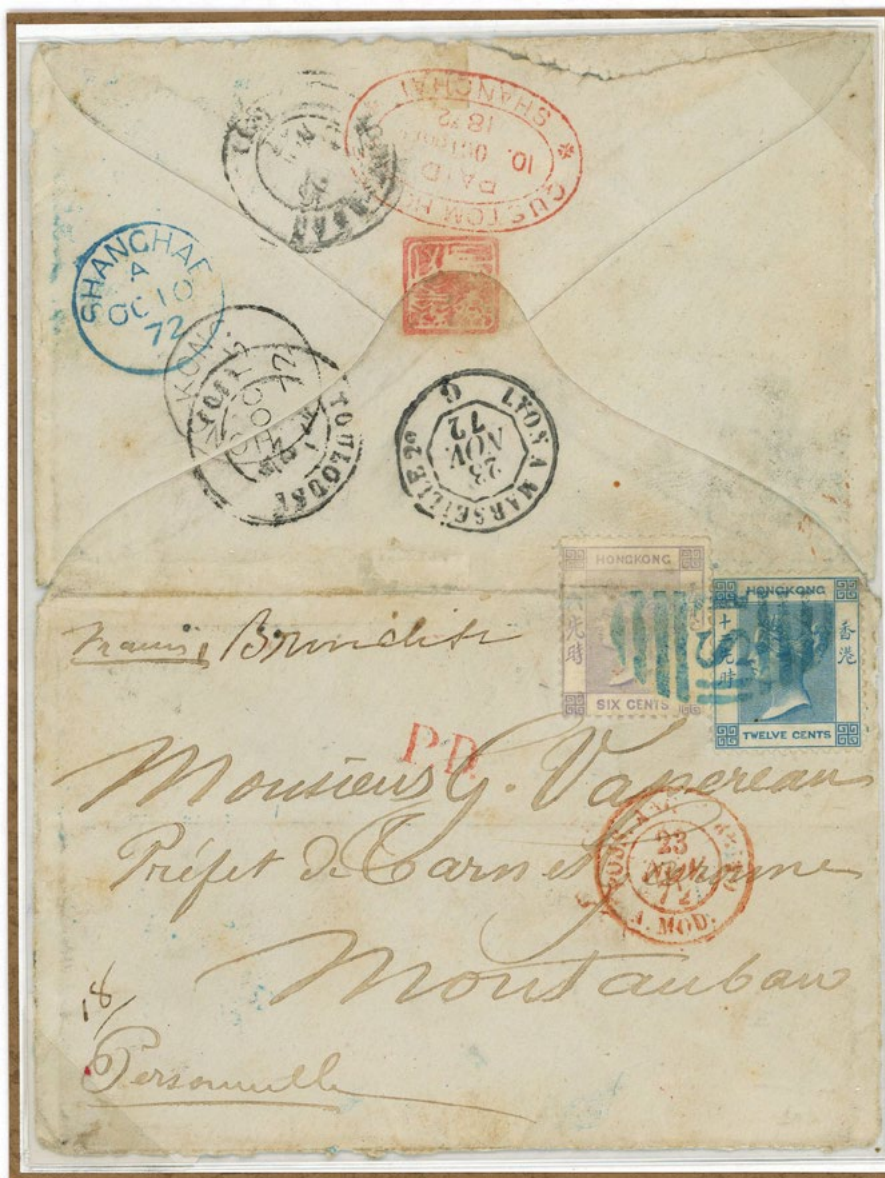 CUSTOM HO
PAID
10. OCT
1872
SHANGHAI
SHANGHAE
A
OC 10
72
TOULOUSE
LYON A MARSEILLE 2º
G
23
NOV.
72
HONGKONG
SIX CENTS
HONGKONG
香港
TWELVE CENTS
S1
Brindisi
P.D.
Monsieur G. Vapereau
Préfet de Tarn et Garonne
Montauban
23
NOV
72
A. MOD.
18/
Personnelle